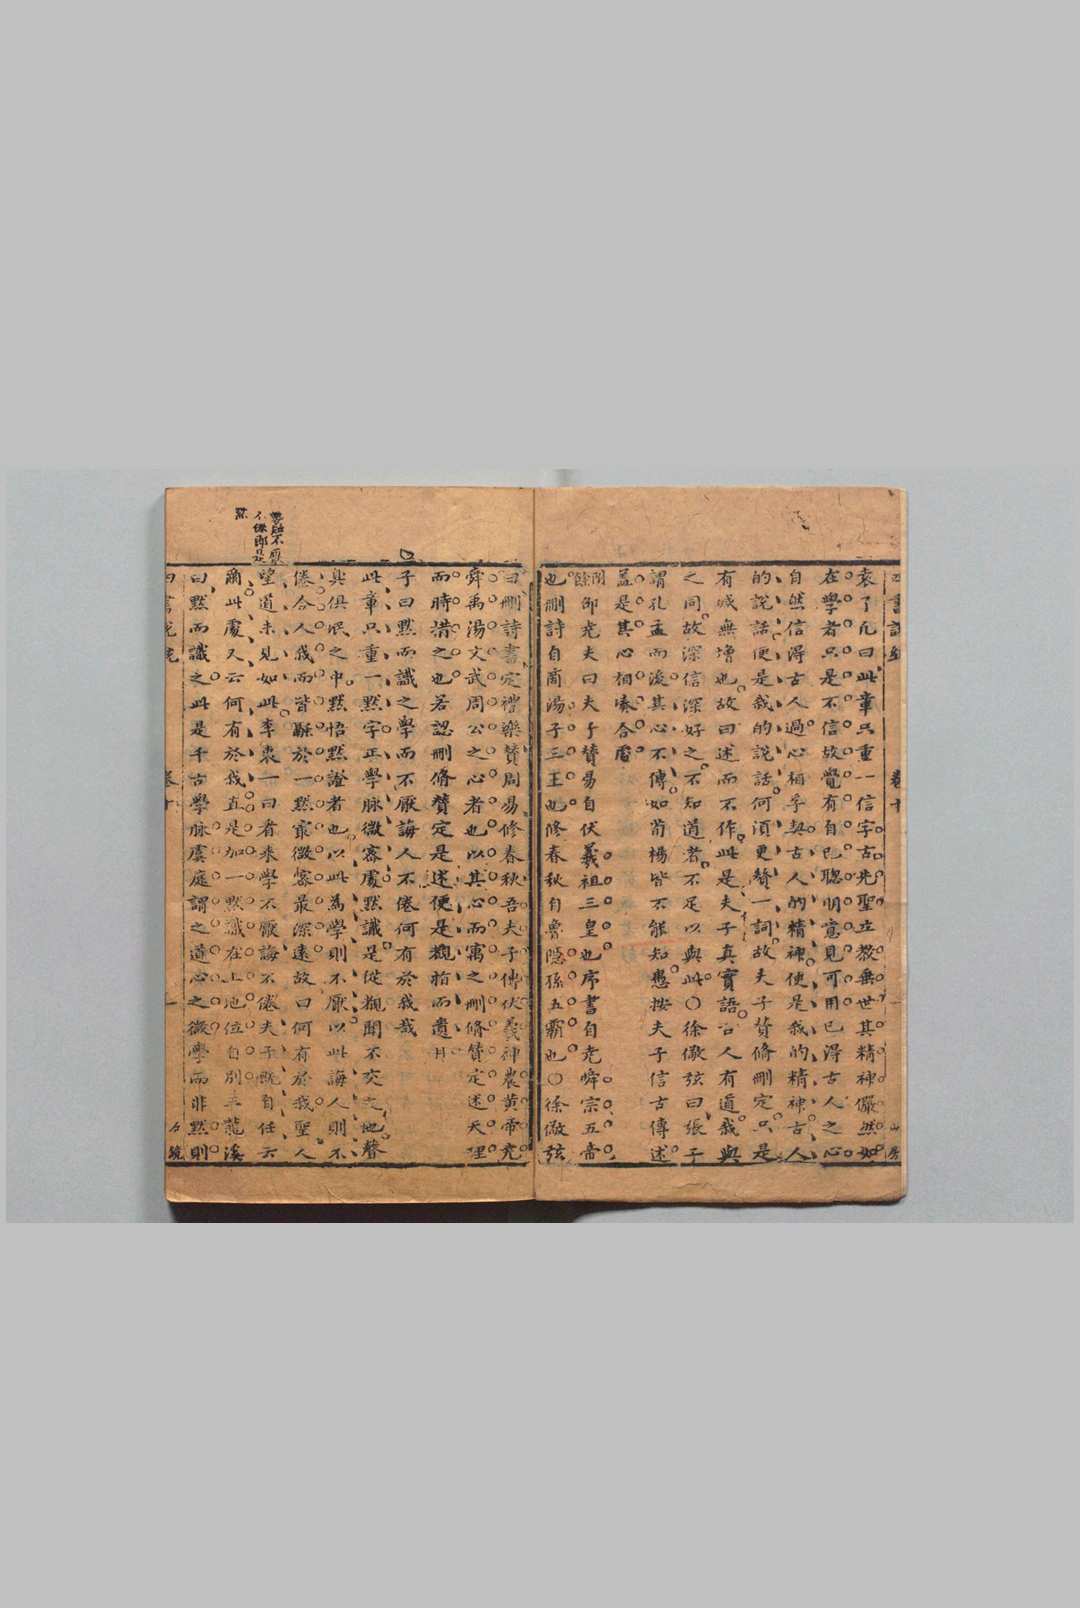 袁了凡曰此章只重一信字古先聖立教垂世其精神儼然如
在學者只是不信故覺有自己聰明意見可用已得古人之心
自然信得古人過心相孚契古人的精神便是我的精神古人
的說話便是我的說話何須更贊一詞故夫子贊脩刪定只是
有減無增也故曰述而不作此是夫子真實語古人有道我與
之同故深信深好之不知道者不足以與此○徐儆弦曰張子
謂孔孟而後其心不傳如荀楊皆不能知愚按夫子信古傳述
蓋是其心相湊合處
邵堯夫曰夫子贊易自伏羲祖三皇也序書自堯舜宗五帝
也刪詩自商湯子三王也修春秋自魯隱孫五霸也○徐儆弦
曰刪詩書定禮樂贊周易修春秋吾夫子傳伏羲神農黃帝堯
舜禹湯文武周公之心者也以其心而寓之刪脩贊定述天理
而時措之也若認刪脩贊定是述便是觀指而遺月
子曰默而識之學而不厭誨人不倦何有於我哉
此章只重一默字正學脉微密處默識是從觀聞不交之地聲
臭俱泯之中默悟默證者也以此為學則不厭以此誨人則不
倦合人我而皆融於一默最微密最深遠故曰何有於我聖人
望道未見如此李衷一曰者來學不厭誨不倦夫子既自任云
爾此處又云何有於我直是加一默識在上地位自別王龍溪
曰默而識之此是千古學脉虞庭謂之道心之微學而非默則